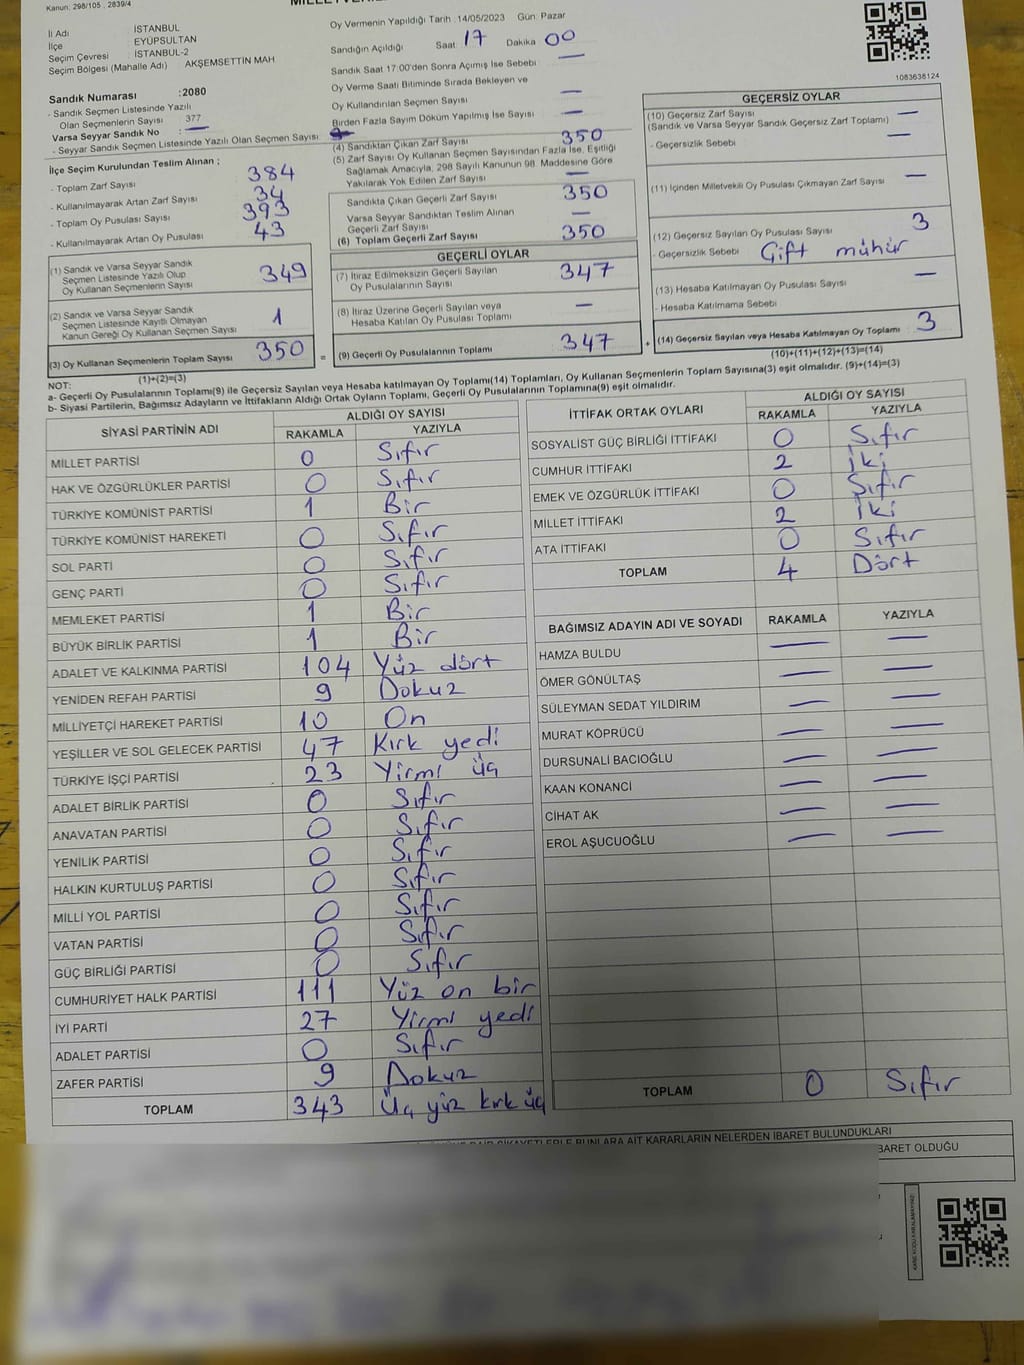 Kanun: 298/105, 2839/4
İl Adı İSTANBUL
İlçe EYÜPSULTAN
Seçim Çevresi İSTANBUL-2
Seçim Bölgesi (Mahalle Adı) AKŞEMSETTİN MAH
Sandık Numarası :2080
- Sandık Seçmen Listesinde Yazılı
Olan Seçmenlerin Sayısı 377
Varsa Seyyar Sandık No : —
- Seyyar Sandık Seçmen Listesinde Yazılı Olan Seçmen Sayısı
İlçe Seçim Kurulundan Teslim Alınan ;
- Toplam Zarf Sayısı 384
- Kullanılmayarak Artan Zarf Sayısı 34
- Toplam Oy Pusulası Sayısı 393
- Kullanılmayarak Artan Oy Pusulası 43
(1) Sandık ve Varsa Seyyar Sandık
Seçmen Listesinde Yazılı Olup
Oy Kullanan Seçmenlerin Sayısı 349
(2) Sandık ve Varsa Seyyar Sandık
Seçmen Listesinde Kayıtlı Olmayan
Kanun Gereği Oy Kullanan Seçmen Sayısı 1
(3) Oy Kullanan Seçmenlerin Toplam Sayısı 350
(1)+(2)=(3)
Oy Vermenin Yapıldığı Tarih :14/05/2023 Gün: Pazar
Sandığın Açıldığı Saat 17 Dakika 00
Sandık Saat 17:00'den Sonra Açımış İse Sebebi —
Oy Verme Saati Bitiminde Sırada Bekleyen ve
Oy Kullandırılan Seçmen Sayısı —
Birden Fazla Sayım Döküm Yapılmış İse Sayısı —
(4) Sandıktan Çıkan Zarf Sayısı 350
(5) Zarf Sayısı Oy Kullanan Seçmen Sayısından Fazla İse, Eşitliği
Sağlamak Amacıyla, 298 Sayılı Kanunun 98. Maddesine Göre
Yakılarak Yok Edilen Zarf Sayısı —
Sandıkta Çıkan Geçerli Zarf Sayısı 350
Varsa Seyyar Sandıktan Teslim Alınan
Geçerli Zarf Sayısı —
(6) Toplam Geçerli Zarf Sayısı 350
GEÇERLİ OYLAR
(7) İtiraz Edilmeksizin Geçerli Sayılan
Oy Pusulalarının Sayısı 347
(8) İtiraz Üzerine Geçerli Sayılan veya
Hesaba Katılan Oy Pusulası Toplamı —
= (9) Geçerli Oy Pusulalarının Toplamı 347
1083638124
GEÇERSİZ OYLAR
(10) Geçersiz Zarf Sayısı —
(Sandık ve Varsa Seyyar Sandık Geçersiz Zarf Toplamı)
- Geçersizlik Sebebi —
(11) İçinden Milletvekili Oy Pusulası Çıkmayan Zarf Sayısı —
(12) Geçersiz Sayılan Oy Pusulası Sayısı 3
- Geçersizlik Sebebi Çift mühür
(13) Hesaba Katılmayan Oy Pusulası Sayısı —
- Hesaba Katılmama Sebebi
+ (14) Geçersiz Sayılan veya Hesaba Katılmayan Oy Toplamı 3
(10)+(11)+(12)+(13)=(14)
NOT:
a- Geçerli Oy Pusulalarının Toplamı(9) ile Geçersiz Sayılan veya Hesaba katılmayan Oy Toplamı(14) Toplamları, Oy Kullanan Seçmenlerin Toplam Sayısına(3) eşit olmalıdır. (9)+(14)=(3)
b- Siyasi Partilerin, Bağımsız Adayların ve İttifakların Aldığı Ortak Oyların Toplamı, Geçerli Oy Pusulalarının Toplamına(9) eşit olmalıdır.
SİYASİ PARTİNİN ADI ALDIĞI OY SAYISI
RAKAMLA YAZIYLA
MİLLET PARTİSİ 0 Sıfır
HAK VE ÖZGÜRLÜKLER PARTİSİ 0 Sıfır
TÜRKİYE KOMÜNİST PARTİSİ 1 Bir
TÜRKİYE KOMÜNİST HAREKETİ 0 Sıfır
SOL PARTİ 0 Sıfır
GENÇ PARTİ 0 Sıfır
MEMLEKET PARTİSİ 1 Bir
BÜYÜK BİRLİK PARTİSİ 1 Bir
ADALET VE KALKINMA PARTİSİ 104 Yüz dört
YENİDEN REFAH PARTİSİ 9 Dokuz
MİLLİYETÇİ HAREKET PARTİSİ 10 On
YEŞİLLER VE SOL GELECEK PARTİSİ 47 Kırk yedi
TÜRKİYE İŞÇİ PARTİSİ 23 Yirmi üç
ADALET BİRLİK PARTİSİ 0 Sıfır
ANAVATAN PARTİSİ 0 Sıfır
YENİLİK PARTİSİ 0 Sıfır
HALKIN KURTULUŞ PARTİSİ 0 Sıfır
MİLLİ YOL PARTİSİ 0 Sıfır
VATAN PARTİSİ 0 Sıfır
GÜÇ BİRLİĞİ PARTİSİ 0 Sıfır
CUMHURİYET HALK PARTİSİ 111 Yüz on bir
İYİ PARTİ 27 Yirmi yedi
ADALET PARTİSİ 0 Sıfır
ZAFER PARTİSİ 9 Dokuz
TOPLAM 343 Üç yüz kırk üç
İTTİFAK ORTAK OYLARI ALDIĞI OY SAYISI
RAKAMLA YAZIYLA
SOSYALİST GÜÇ BİRLİĞİ İTTİFAKI 0 Sıfır
CUMHUR İTTİFAKI 2 İki
EMEK VE ÖZGÜRLÜK İTTİFAKI 0 Sıfır
MİLLET İTTİFAKI 2 İki
ATA İTTİFAKI 0 Sıfır
TOPLAM 4 Dört
BAĞIMSIZ ADAYIN ADI VE SOYADI RAKAMLA YAZIYLA
HAMZA BULDU — —
ÖMER GÖNÜLTAŞ — —
SÜLEYMAN SEDAT YILDIRIM — —
MURAT KÖPRÜCÜ — —
DURSUNALİ BACIOĞLU — —
KAAN KONANCİ — —
CİHAT AK — —
EROL AŞUCUOĞLU — —
TOPLAM 0 Sıfır
ŞİKAYETLERLE BUNLARA AİT KARARLARIN NELERDEN İBARET BULUNDUKLARI
BARET OLDUĞU